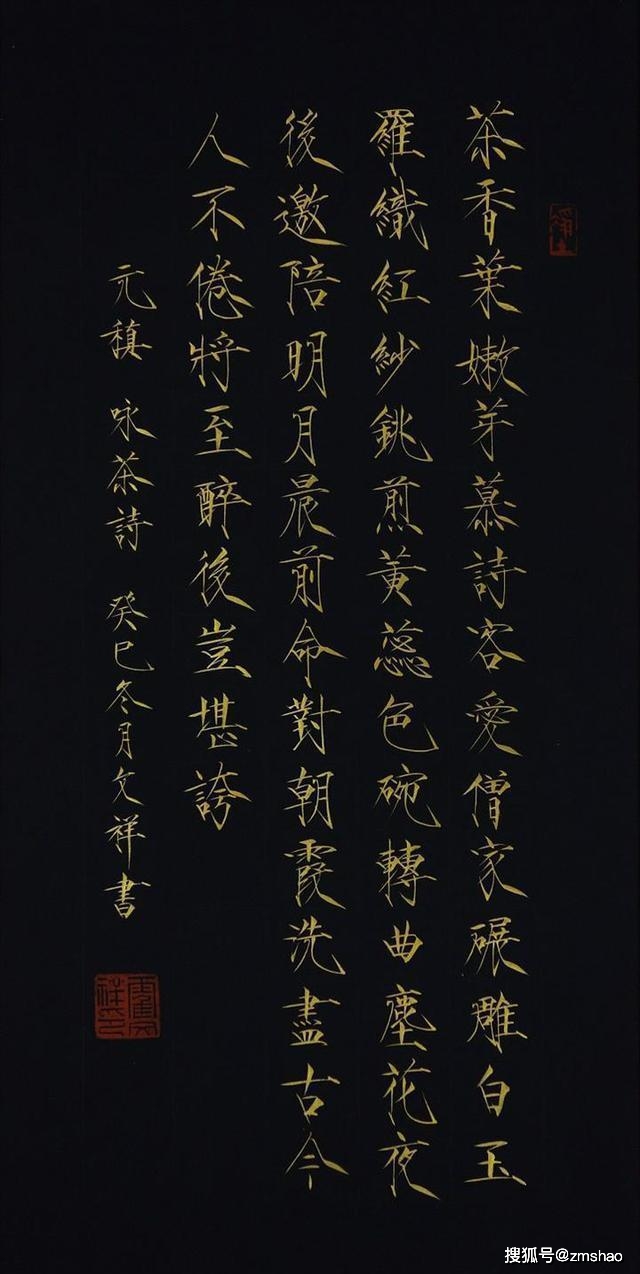 茶香葉嫩芽慕詩客愛僧家碾雕白玉
羅織紅紗銚煎黃蕊色碗轉曲塵花夜
後邀陪明月晨前命對朝霞洗盡古今
人不倦將至醉後豈堪誇
元稹 咏茶詩 癸巳冬月文祥書
搜狐号@zmshao